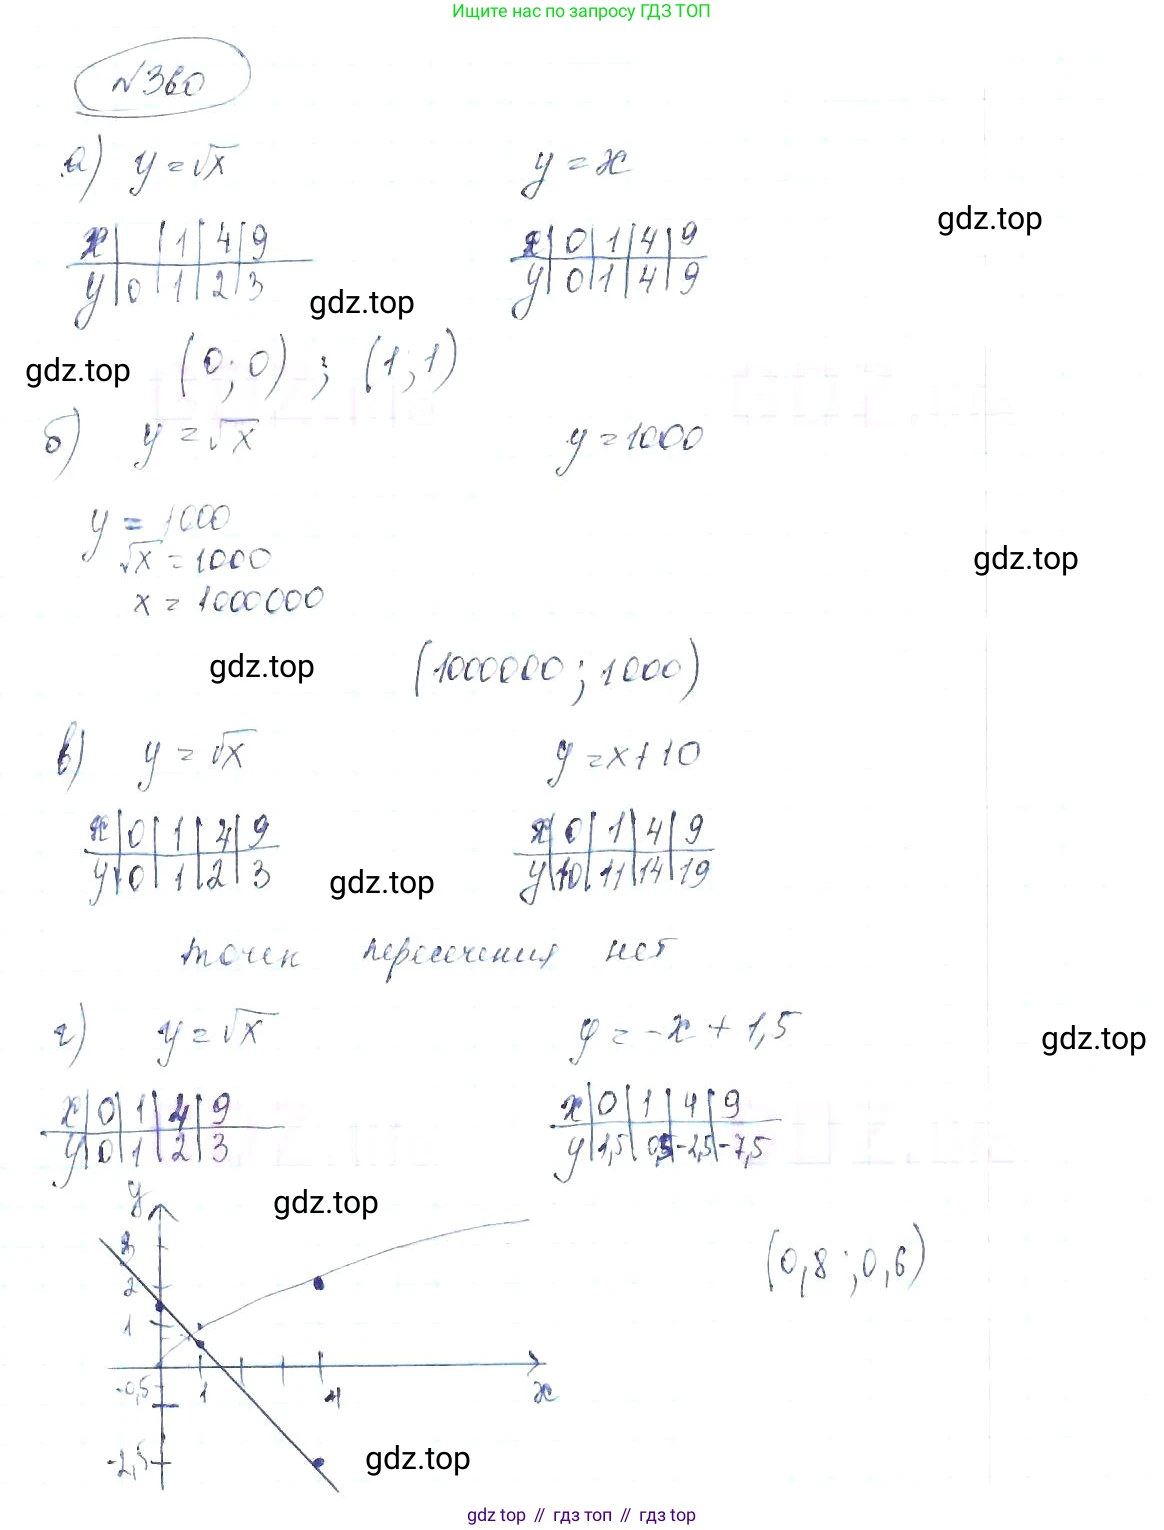 Ищите нас по запросу ГДЗ ТОП
№360
а) y = √x y = x
x | | 1 | 4 | 9 x | 0 | 1 | 4 | 9
y | 0 | 1 | 2 | 3 y | 0 | 1 | 4 | 9
gdz.top
gdz.top
gdz.top
(0; 0) ; (1; 1)
б) y = √x y = 1000
y = 1000
√x = 1000
x = 1000000
gdz.top
gdz.top
(1000000; 1000)
в) y = √x y = x + 10
x | 0 | 1 | 4 | 9 x | 0 | 1 | 4 | 9
y | 0 | 1 | 2 | 3 y | 10 | 11 | 14 | 19
gdz.top
точек пересечения нет
г) y = √x y = -x + 1,5
gdz.top
x | 0 | 1 | 4 | 9 x | 0 | 1 | 4 | 9
y | 0 | 1 | 2 | 3 y | 1,5 | 0,5 | -2,5 | -7,5
gdz.top
y
3
2
1
(0,8; 0,6)
-0,5 1 4 x
-2,5
gdz.top
gdz top // гдз топ // гдз top